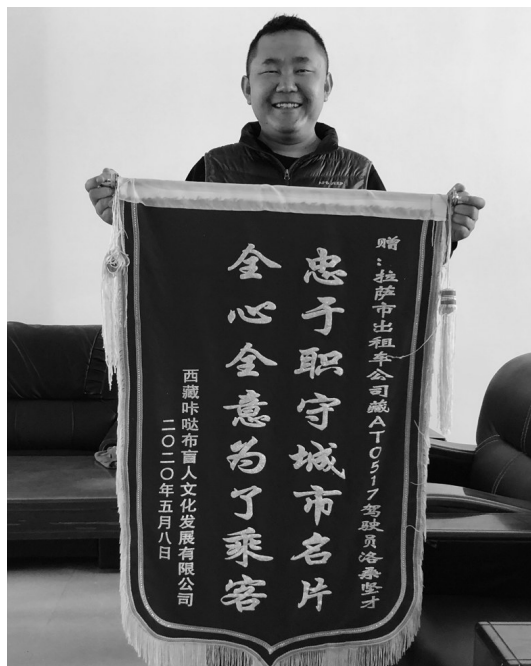 赠：拉萨市出租车公司藏AT0517驾驶员洛桑坚才
忠于职守城市名片
全心全意为了乘客
西藏咔哒布盲人文化发展有限公司
二〇二〇年五月八日